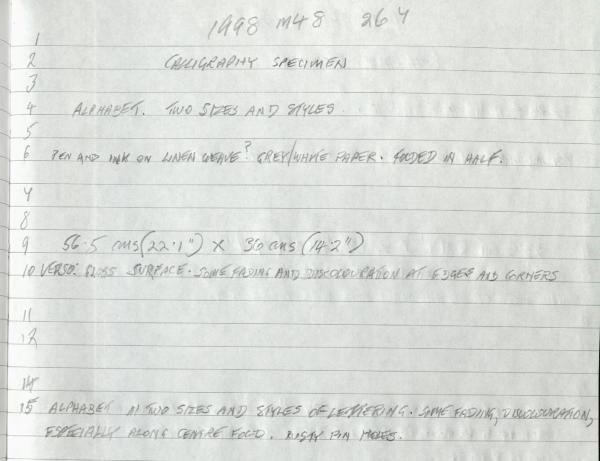 1998 M48 264
1
2 CALLIGRAPHY SPECIMEN
3
4 ALPHABET. TWO SIZES AND STYLES.
5
6 PEN AND INK ON LINEN WEAVE? GREY/WHITE PAPER. FOLDED IN HALF.
7
8
9 56.5 cms (22.1") X 36 cms (14.2")
10 VERSO: SURFACE. SOME FADING AND DISCOLOURATION AT EDGES AND CORNERS
11
12
14
15 ALPHABET IN TWO SIZES AND STYLES OF LETTERING. SOME FADING, DISCOLOURATION,
ESPECIALLY ALONG CENTRE FOLD. RUSTY PIN HOLES.